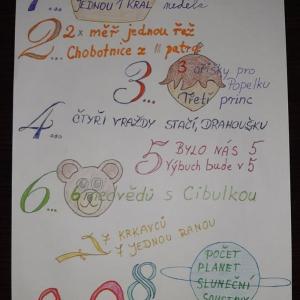 1... JEDNOU 1 KRÁL neděle
2... 2x měř jednou řež
Chobotnice z II patra
3... 3 oříšky pro
Popelku
Třetí princ
4... ČTYŘI VRAŽDY STAČÍ, DRAHOUŠKU
5 BYLO NÁS 5
Výbuch bude v 5
6... 6 medvědů s Cibulkou
7 KRKAVCŮ
7 JEDNOU RANOU
8
POČET
PLANET
SLUNEČNÍ
SOUSTAVY